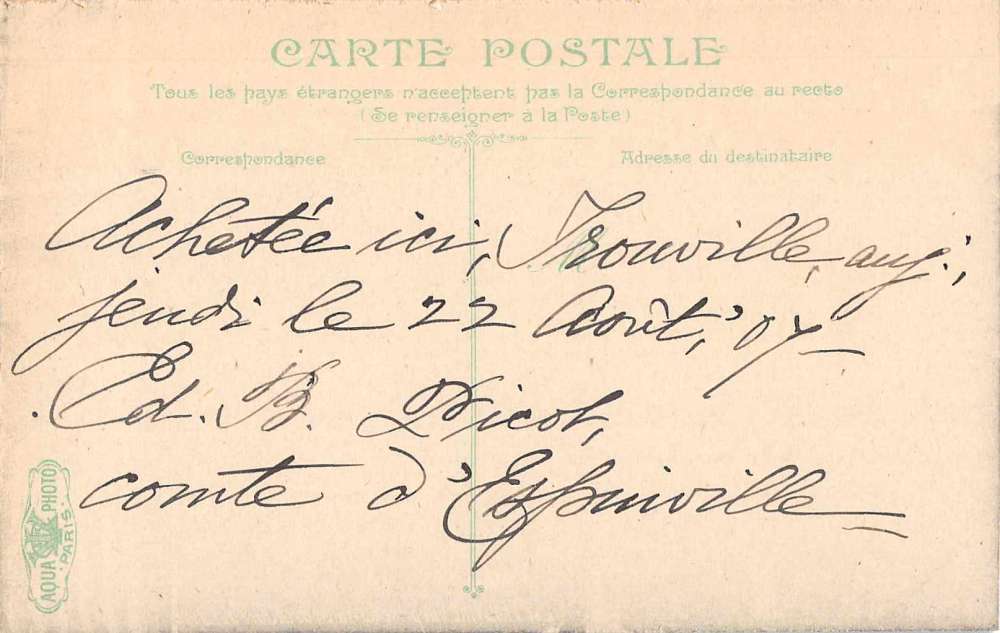 CARTE POSTALE
Tous les pays étrangers n'acceptent pas la Correspondance au recto
(Se renseigner à la Poste)
Correspondance
Adresse du destinataire
Achetée ici, Trouville, auj.,
jeudi le 22 Août, '07
Ed. B. Picot,
comte d'Espinville
AQUA PHOTO
PARIS